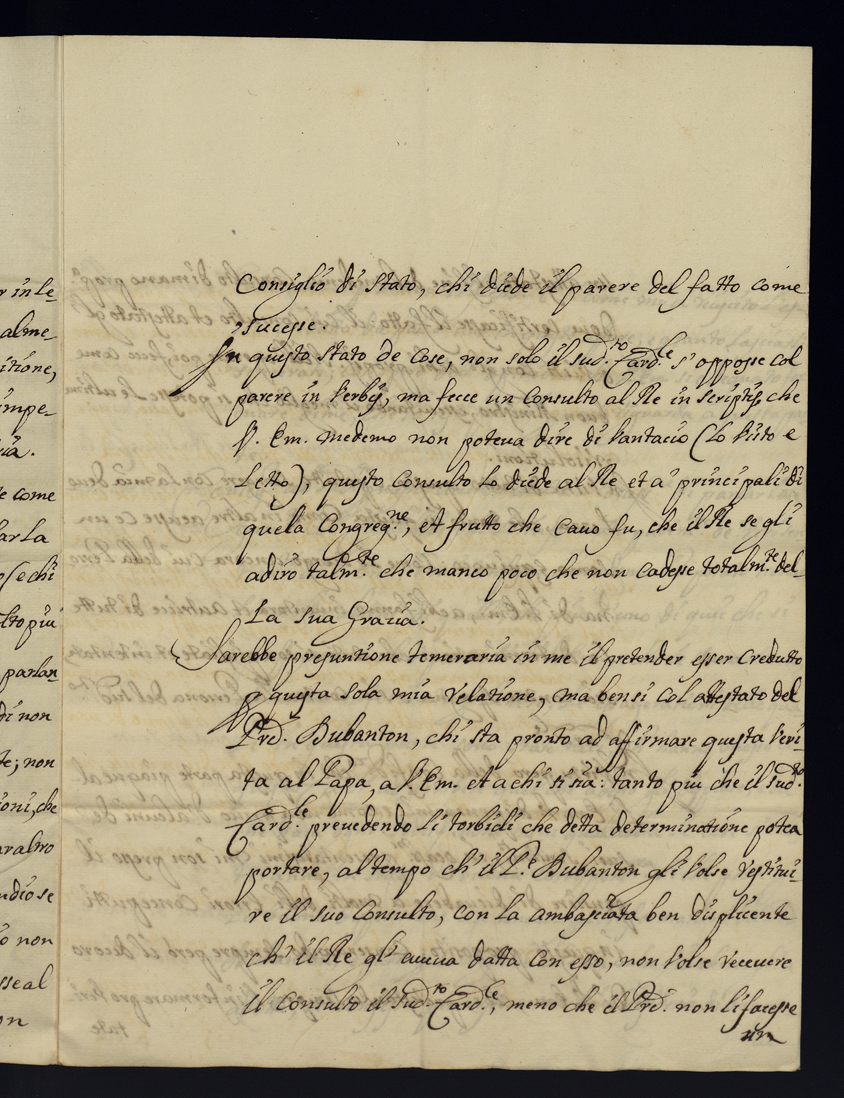 r in le-
alme-
itione,
impe-
ia.
te come
ar La
o se chi
lto più
parlan
di non
te; non
ioni, che
ar altro
ndio se
o non
sse al
on
Consiglio di Stato, chi diede il parere del fatto come
successe.
In questo stato de cose, non solo il Sud.to Card.le s'oppose col
parere in Verbis, ma fece un Consulto al Re in scriptis, che
V. Em. medemo non poteva dire di Vantacio (Lo Visto e
Letto), questo Consulto Lo diede al Re et a' principali di
quela Congreg.ne, et frutto che cavò fu, che il Re se gli
adirò talm.te che mancò poco che non cadesse totalm.te del-
La sua Gracia.
Sarebbe presuntione temeraria in me il pretender esser credutto
p questa sola mia relatione, ma bensi col attestato del
Prd. Bubanton, chi sta pronto ad affirmare questa Veri-
ta al Papa, a V. Em. et a chi si sia: tanto più che il Sud.to
Card.le prevedendo Li torbidi che detta determinatione potea
portare, al tempo ch' il P.e Bubanton gli Volse restitui-
re il suo Consulto, con La ambasciata ben displicente
ch' il Re gl' aveva datta con esso, non Volse recevere
il Consulto il Sud.to Card.le, meno che il Prd. non li facesse
un